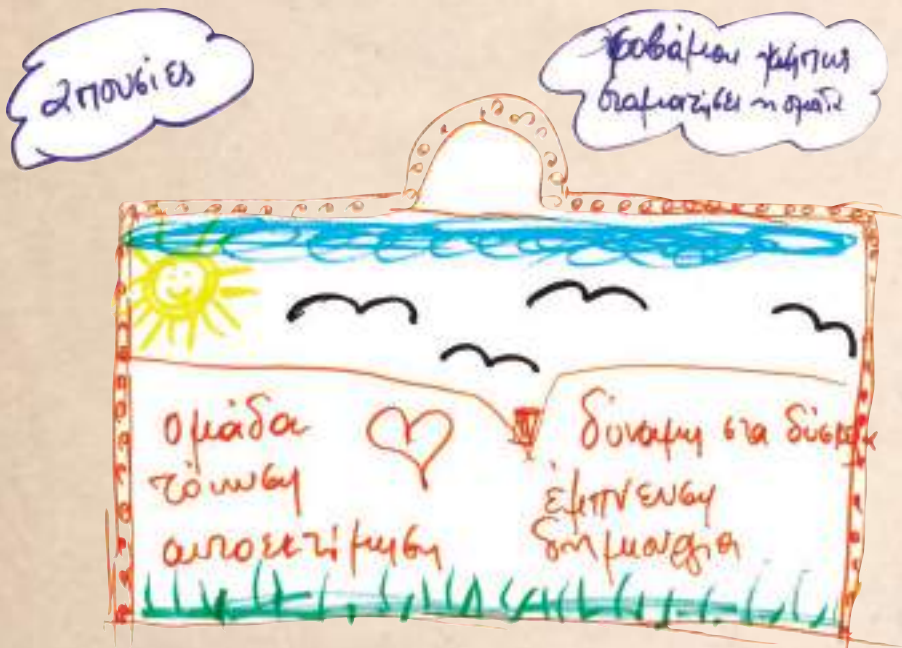 απουσίες
φοβάμαι μήπως
σταματήσει η ομάδα
ομάδα
τόνωση
αυτοεκτίμηση
δύναμη στα δύσκολα
έμπνευση
δημιουργία